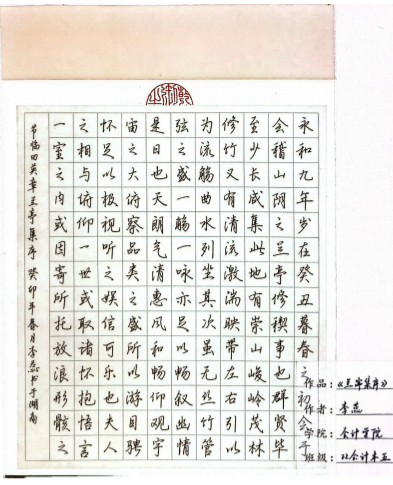 永和九年岁在癸丑暮春之初会于
会稽山阴之兰亭修禊事也群贤毕
至少长咸集此地有崇山峻岭茂林
修竹又有清流激湍映带左右引以
为流觞曲水列坐其次虽无丝竹管
弦之盛一觞一咏亦足以畅叙幽情
是日也天朗气清惠风和畅仰观宇
宙之大俯察品类之盛所以游目骋
怀足以极视听之娱信可乐也夫人
之相与俯仰一世或取诸怀抱悟言
一室之内或因寄所托放浪形骸之
节临田英章兰亭集序 癸卯年春月李蕊书于湖南
作品：《兰亭集序》
作者：李蕊
学院：会计学院
班级：22会计本五